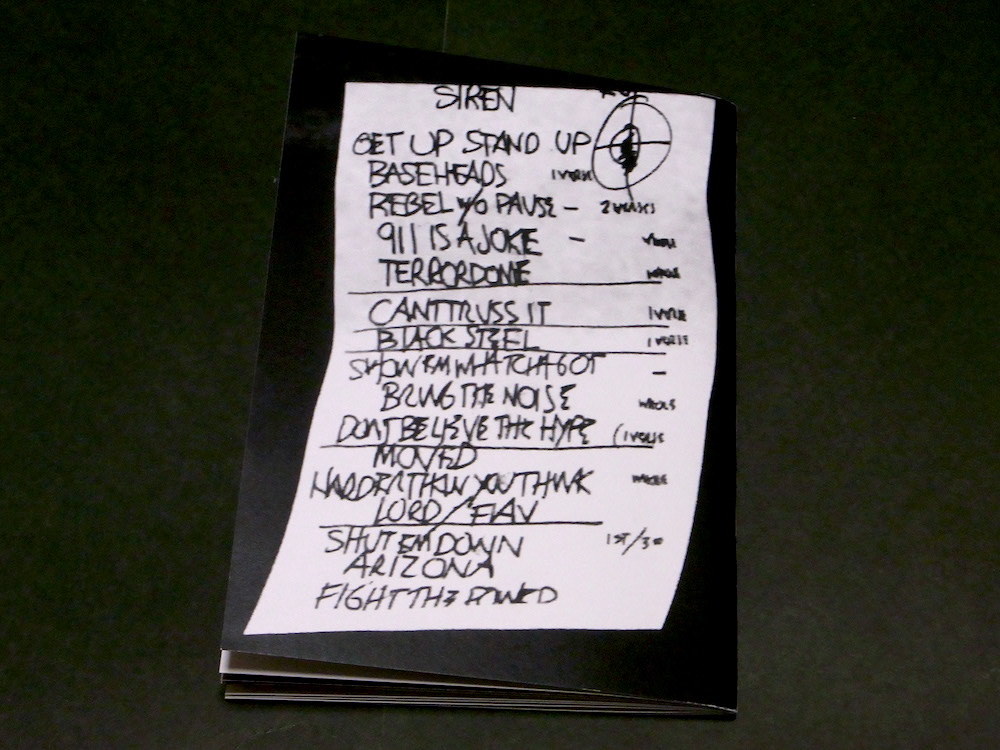 SIREN
GET UP STAND UP
BASEHEADS 1 VERSE
REBEL W/O PAUSE - 2 VERSES
911 IS A JOKE -
TERRORDOME WHOLE
CANT TRUSS IT 1 VERSE
BLACK STEEL 1 VERSE
SHOW EM WHATCHA GOT -
BRING THE NOISE WHOLE
DONT BELIEVE THE HYPE (1 VERSE
MOVED
HARDER THAN YOU THINK WHOLE
LORD / FLAV
SHUT EM DOWN 1ST/3
ARIZONA
FIGHT THE POWER